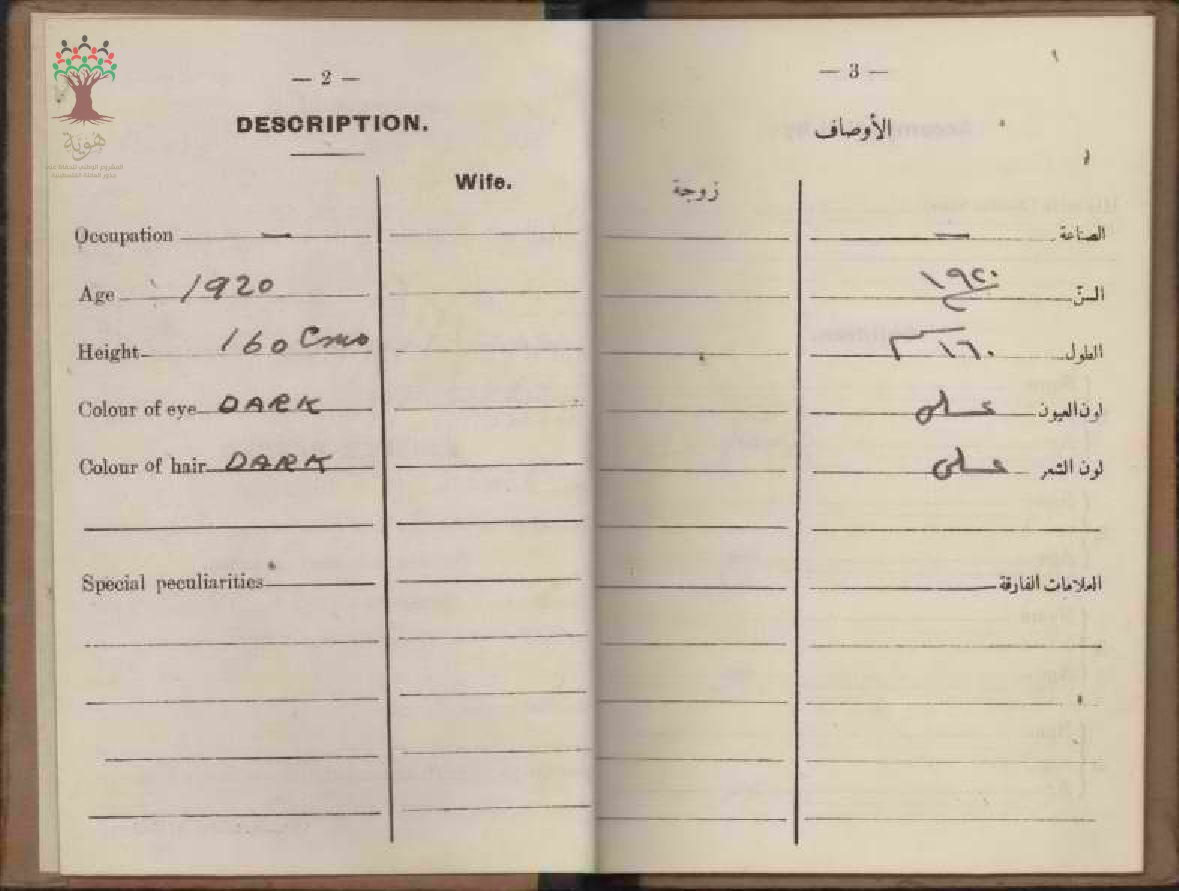 هَوِيَّة
المشروع الوطني للحفاظ على
جذور العائلة الفلسطينية
— 2 —
DESCRIPTION.
Wife.
Occupation —
Age 1920
Height 160 Cms
Colour of eye DARK
Colour of hair DARK
Special peculiarities
— 3 —
الأوصاف
زوجة
الصناعة —
السنّ ١٩٢٠
الطول ١٦٠ سم
لون العيون عسلي
لون الشعر عسلي
العلامات الفارقة